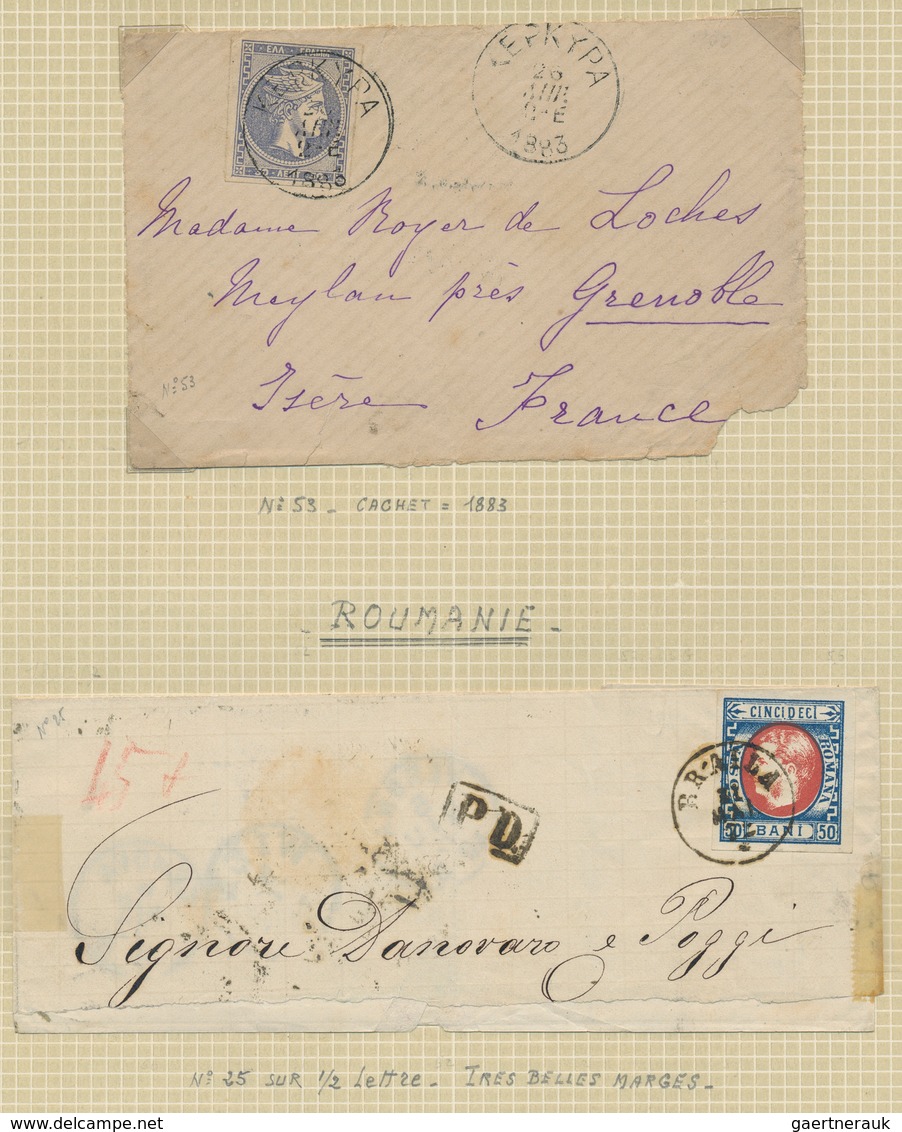 ΚΕΡΚΥΡΑ
26
1883
ΚΕΡΚΥΡΑ
Madame Royer de Loches
Meylan près Grenoble
Isère France
Nº 53
Nº 53 - CACHET = 1883
- ROUMANIE -
Nº 25
45
PD
CINCIDECI
ROMANA
50 BANI 50
BRAILA
Signori Danovaro e Poggi
Nº 25 SUR 1/2 Lettre - TRES BELLES MARGES -
delcampe.net
gaertnerauk